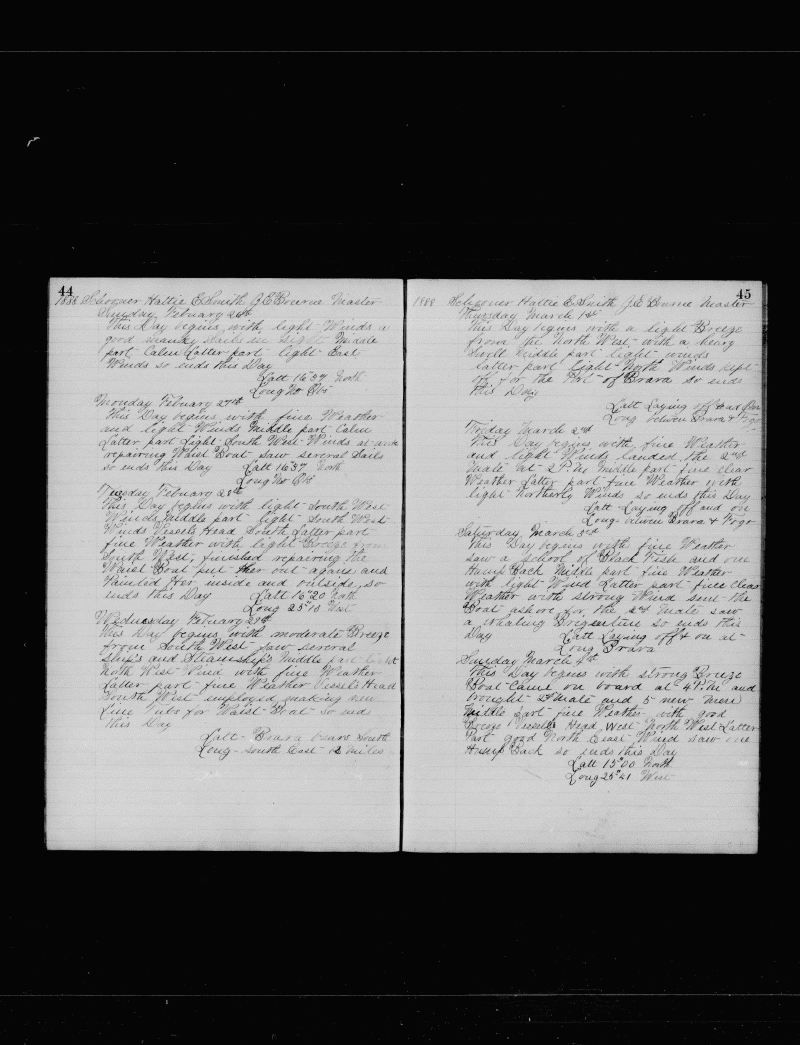 44
1888 Schooner Hattie E Smith J E Bourne Master
Sunday Febuary 26th
This Day begins with light Winds a
good many Sails in Sight Middle
part Calm Latter part light East
Winds so ends this Day
Latt 16"37 North
Long No Obs
Monday Febuary 27th
This Day begins with fine Weather
and light Winds Middle part Calm
Latter part Light South West Winds at work
repairing Waist Boat saw several Sails
so ends this Day Latt 16"37 North
Long No Obs
Tuesday Febuary 28th
This Day begins with light South West
Winds Middle part light South West
Winds Vessels Head South Latter part
fine Weather with light Breeze from
South West, finished repairing the
Waist Boat put her out again and
Painted Her inside and outside, so
ends this Day Latt 16"20 North
Long 25"10 West
Wednesday Febuary 29th
This Day begins with moderate Breeze
from South West saw several
Ship's and Steamship's Middle part light
North West Wind with fine Weather
Latter part fine Weather Vessels Head
South West employed making new
Line Tubs for Waist Boat so ends
this Day
Latt - Brava bears South
Long - South East miles
45
1888 Schooner Hattie E Smith J E Bourne Master
Thursday March 1st
This Day begins with a light Breeze
from the North West with a heavy
Swell Middle part light winds
latter part light North Winds kept
off for the Port of Brava so ends
this Day
Latt Laying off and on
Long between Brava & Fogo
Friday March 2nd
This Day begins with fine Weather
and light Winds landed the 2nd
Mate at 2 P.M. Middle part fine clear
Weather Latter part fine Weather with
light Northerly Winds so ends this Day
Latt Laying off and on
Long between Brava & Fogo
Saturday March 3rd
This Day begins with fine Weather
saw a School of Black Fish and one
Hump Back Middle part fine Weather
with light Wind Latter part fine Clear
Weather with strong Wind sent the
Boat ashore for the 2nd Mate saw
a whaling Brigentine so ends this
Day Latt Laying off & on at
Long Brava
Sunday March 4th
This Day begins with strong Breeze
Boat Came on board at 4 P.M and
brought 2 Mate and 5 new men
Middle part fine Weather with good
Breeze Vessels Head West North West Latter
Part good North East Wind saw one
Hump Back so ends this Day
Latt 15"00 North
Long 25"41 West